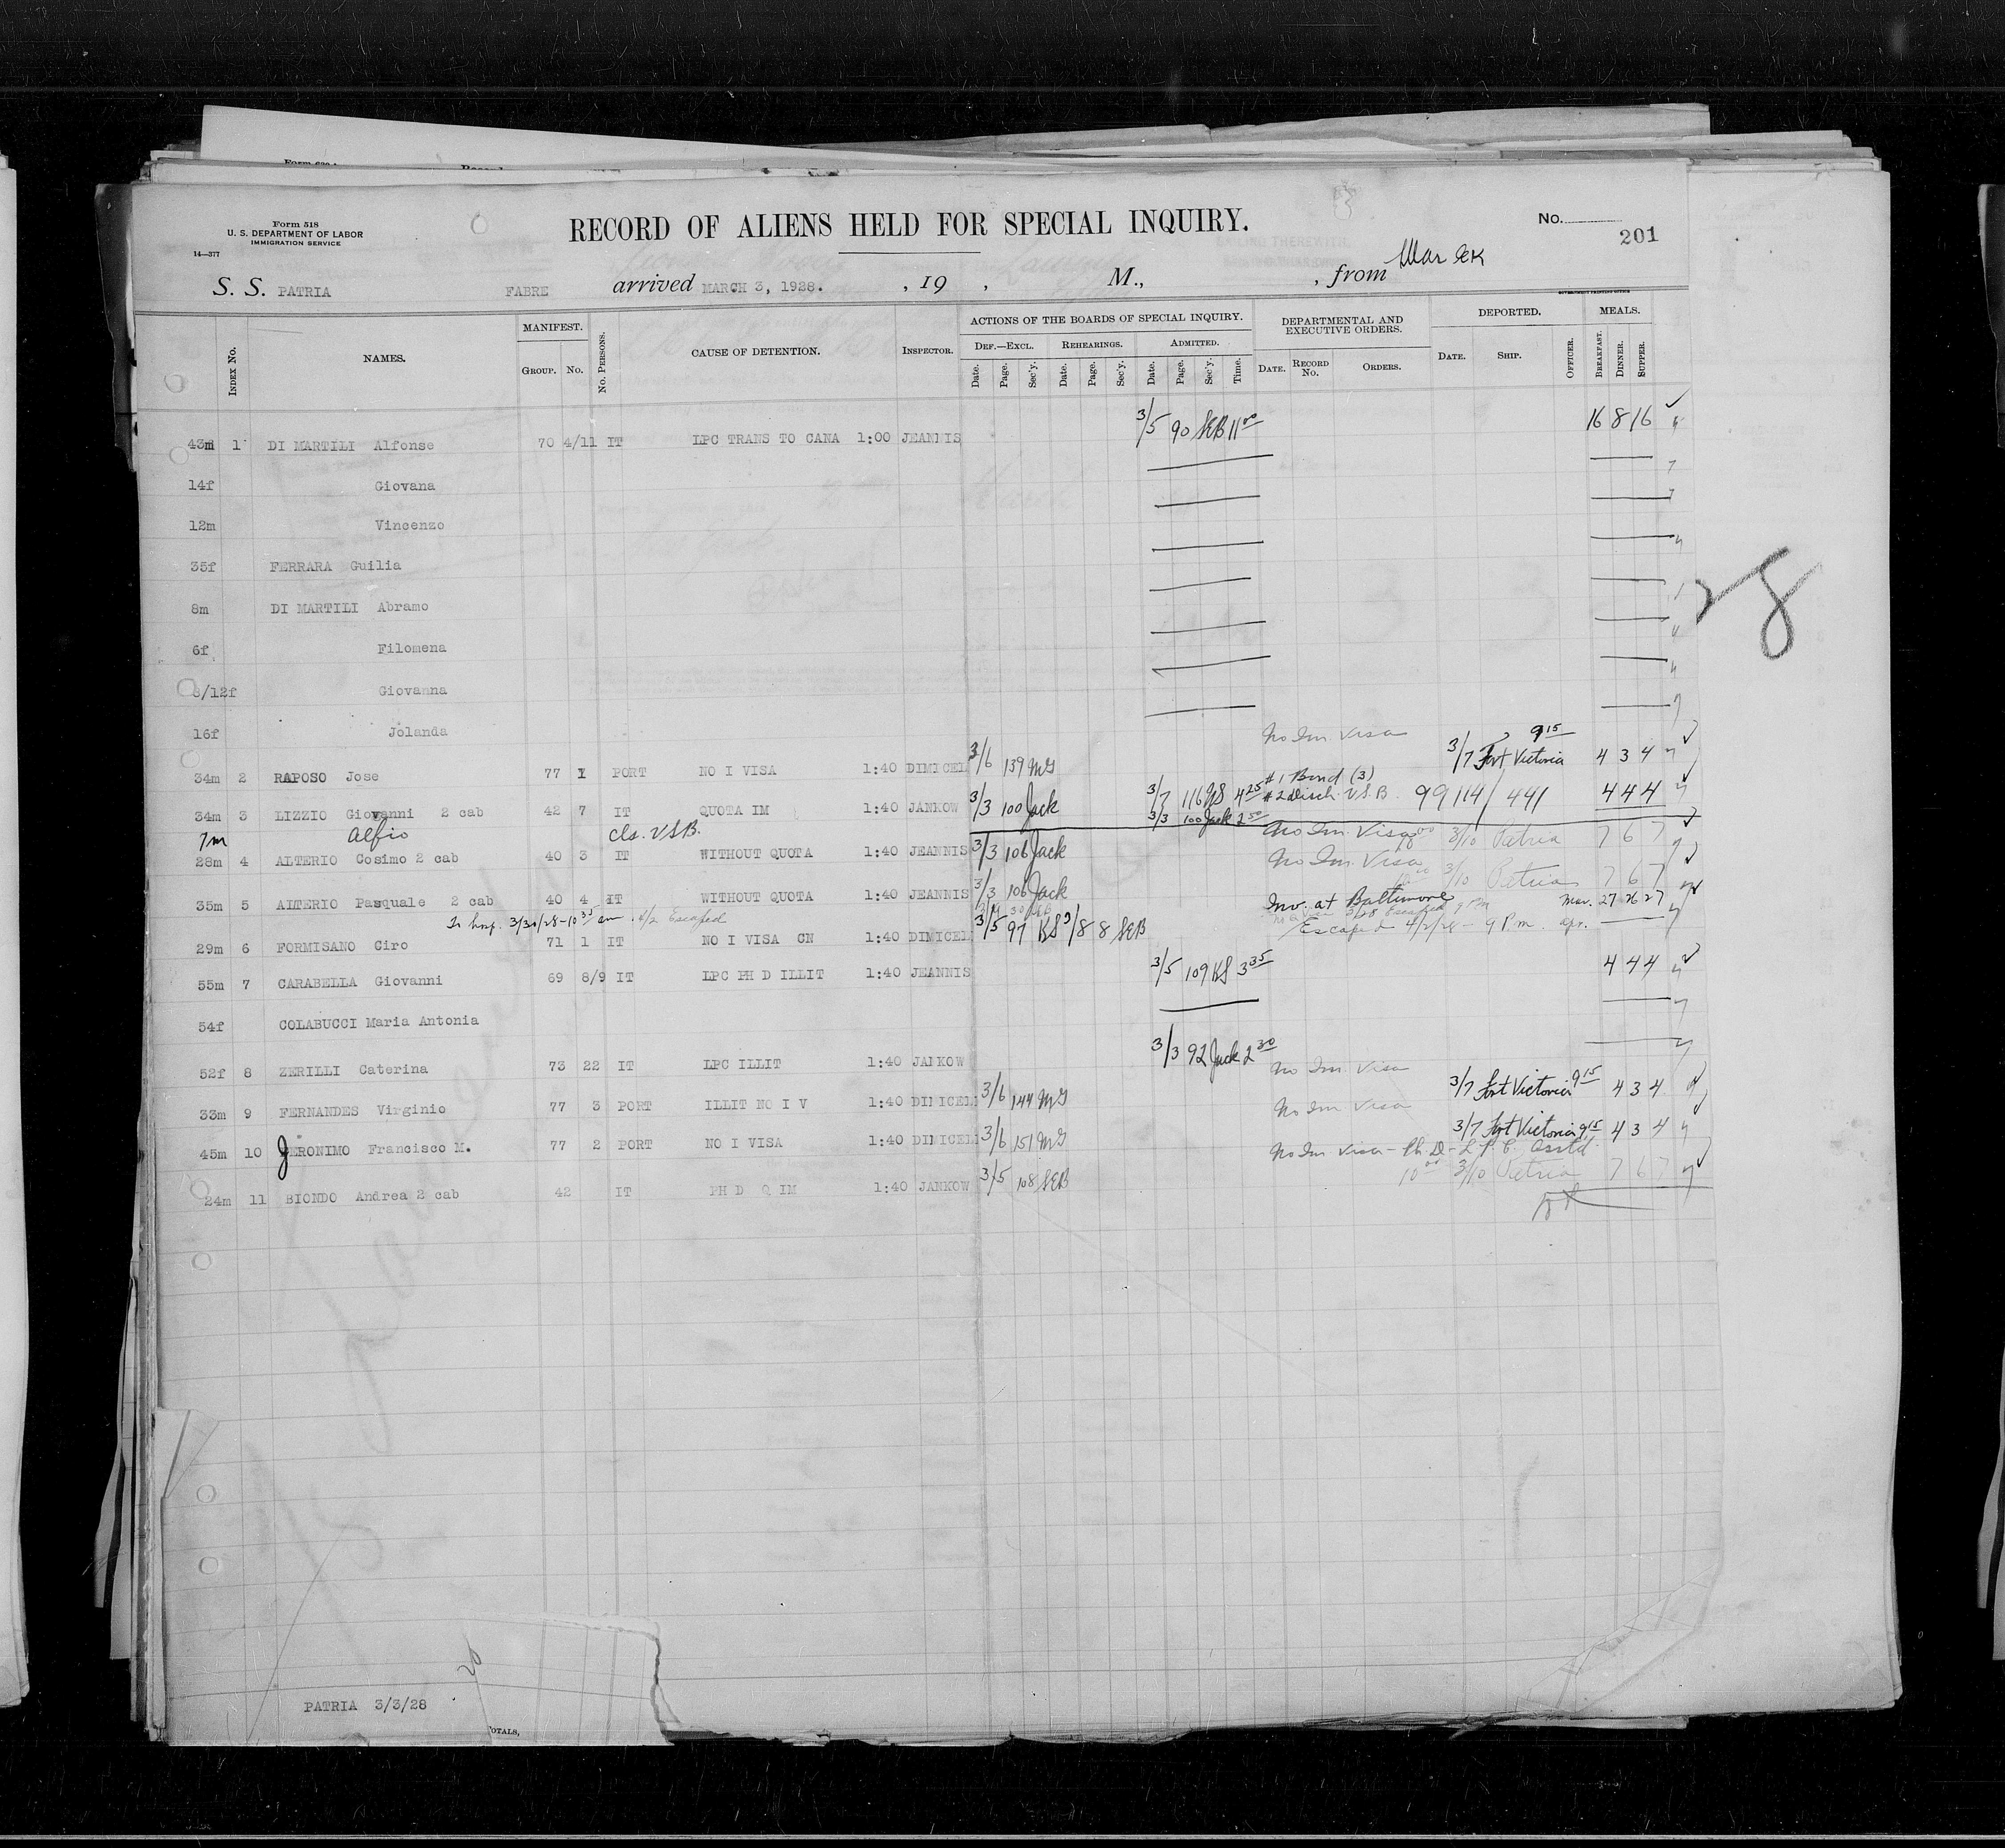 Form 518
U. S. DEPARTMENT OF LABOR
IMMIGRATION SERVICE
14—377
RECORD OF ALIENS HELD FOR SPECIAL INQUIRY.
No.
201
S. S. PATRIA FABRE arrived MARCH 3, 1928. , 19 , M., , from
INDEX No. NAMES. MANIFEST. GROUP. No. No. PERSONS. CAUSE OF DETENTION. INSPECTOR. ACTIONS OF THE BOARDS OF SPECIAL INQUIRY. DEF.—EXCL. REHEARINGS. ADMITTED. Date. Page. Sec'y. Date. Page. Sec'y. Date. Page. Sec'y. Time. DEPARTMENTAL AND EXECUTIVE ORDERS. DATE. RECORD No. ORDERS. DEPORTED. DATE. SHIP. OFFICER. MEALS. BREAKFAST. DINNER. SUPPER.
43m 1 DI MARTILI Alfonse 70 4/11 IT LPC TRANS TO CANA 1:00 JEANNIS 3/5 90 SEB 11 00 16 8 16
14f Giovana
12m Vincenzo
35f FERRARA Guilia
8m DI MARTILI Abramo
28
6f Filomena
8/12f Giovanna
16f Jolanda
No Im Visa 9 15
34m 2 RAPOSO Jose 77 1 PORT NO I VISA 1:40 DIMICEL 3/6 139 MG 3/7 Fort Victoria 4 3 4
#1 Bond (3)
34m 3 LIZZIO Giovanni 2 cab 42 7 IT QUOTA IM 1:40 JANKOW 3/3 100 Jack 3/7 116 4 25 #2 disch. V.S.B. 99114/441 4 4 4
7m Alfio cls. VSB. 3/3 100 Jack 2 50
No Im. Visa
28m 4 ALTERIO Cosimo 2 cab 40 3 IT WITHOUT QUOTA 1:40 JEANNIS 3/3 106 Jack 3/10 Patria 7 6 7
No Im. Visa
35m 5 ALTERIO Pasquale 2 cab 40 4 IT WITHOUT QUOTA 1:40 JEANNIS 3/3 106 Jack 10 00 3/10 Patria 7 6 7
In hosp. 3/30/28-10 35 am 4/2 Escaped
Inv. at Baltimore Mar. 27 26 27
29m 6 FORMISANO Ciro 71 1 IT NO I VISA CN 1:40 DIMICEL 3/5 97 KS 3/8 8 SEB Escaped 4/2/28 - 9 P.m. apr.
55m 7 CARABELLA Giovanni 69 8/9 IT LPC PH D ILLIT 1:40 JEANNIS 3/5 109 KS 3 35 4 4 4
54f COLABUCCI Maria Antonia
52f 8 ZERILLI Caterina 73 22 IT LPC ILLIT 1:40 JANKOW 3/3 92 Jack 2 30
No Im. Visa
33m 9 FERNANDES Virginio 77 3 PORT ILLIT NO I V 1:40 DIMICEL 3/6 144 MG 3/7 Fort Victoria 9 15 4 3 4
No Im Visa
45m 10 JERONIMO Francisco M. 77 2 PORT NO I VISA 1:40 DIMICEL 3/6 151 MG 3/7 Fort Victoria 9 15 4 3 4
No Im Visa - Ph. D - L. P. C.
24m 11 BIONDO Andrea 2 cab 42 IT PH D Q IM 1:40 JANKOW 3/5 108 SEB 10 00 3/10 Patria 7 6 7
PATRIA 3/3/28
TOTALS,